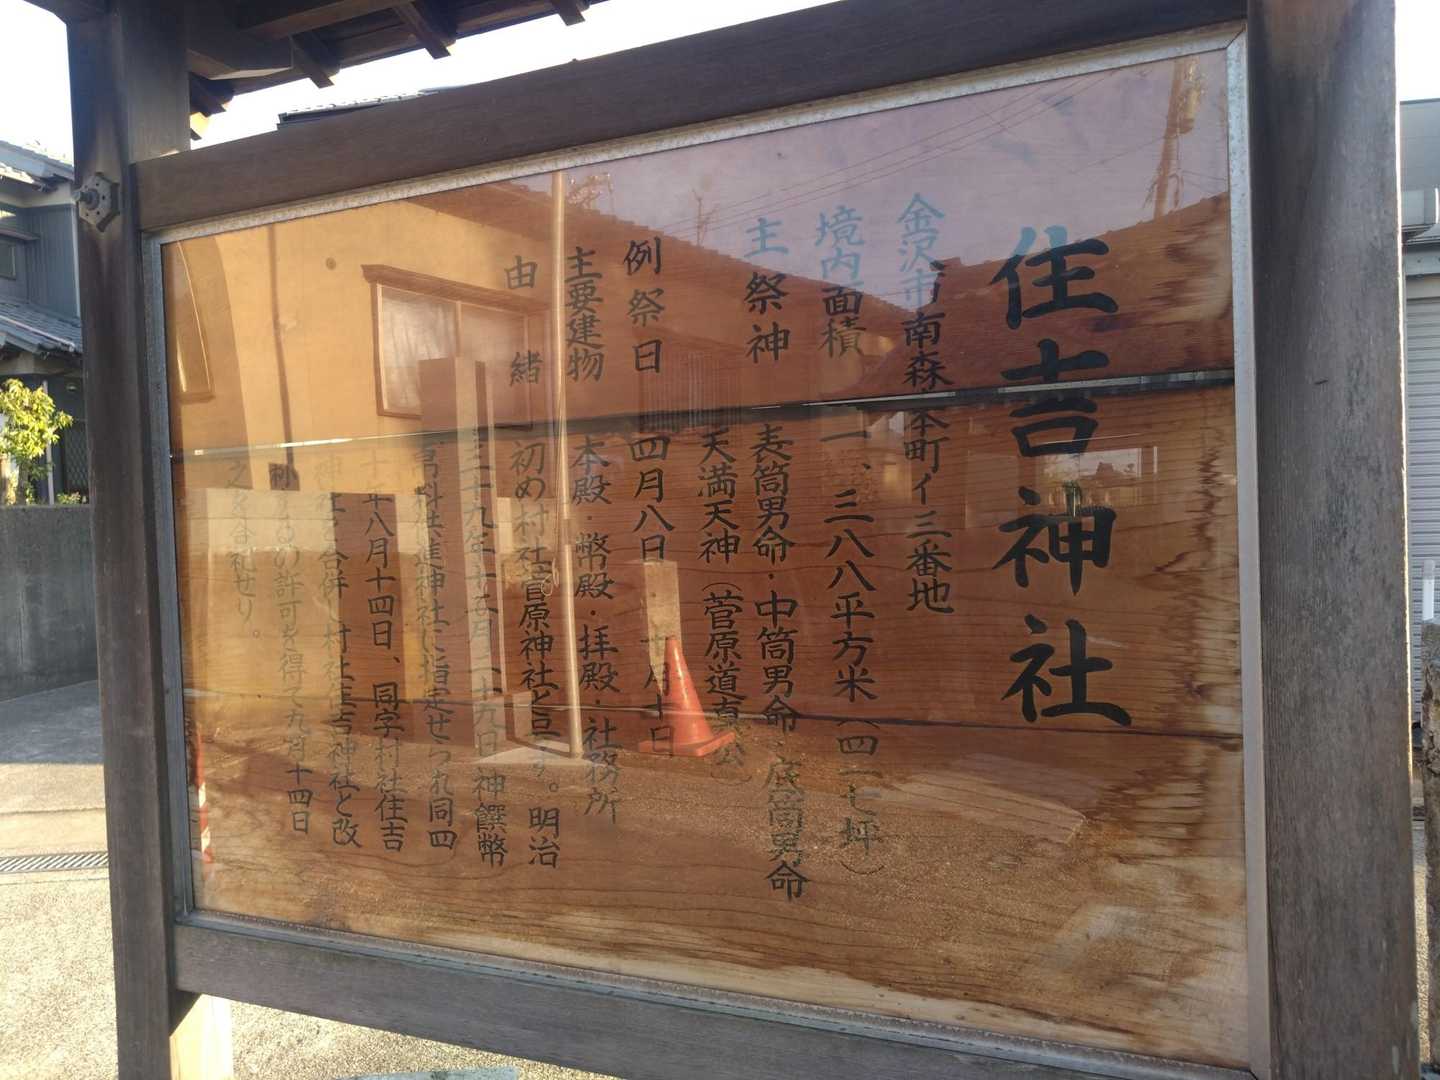 住吉神社
金沢市南森本町イ三番地
境内面積 一、三八八平方米(四一七坪)
主祭神 表筒男命・中筒男命・底筒男命
天満天神(菅原道真公)
例祭日 四月八日 十月十日
主要建物 本殿・幣殿・拝殿・社務所
由緒 初め村社菅原神社と号す。明治
三十九年十二月二十九日神饌幣
帛料供進神社に指定せられ同四
十年八月十四日、同字村社住吉
神社を合併し村社住吉神社と改
称するの許可を得て九月十四日
之を合祀せり。